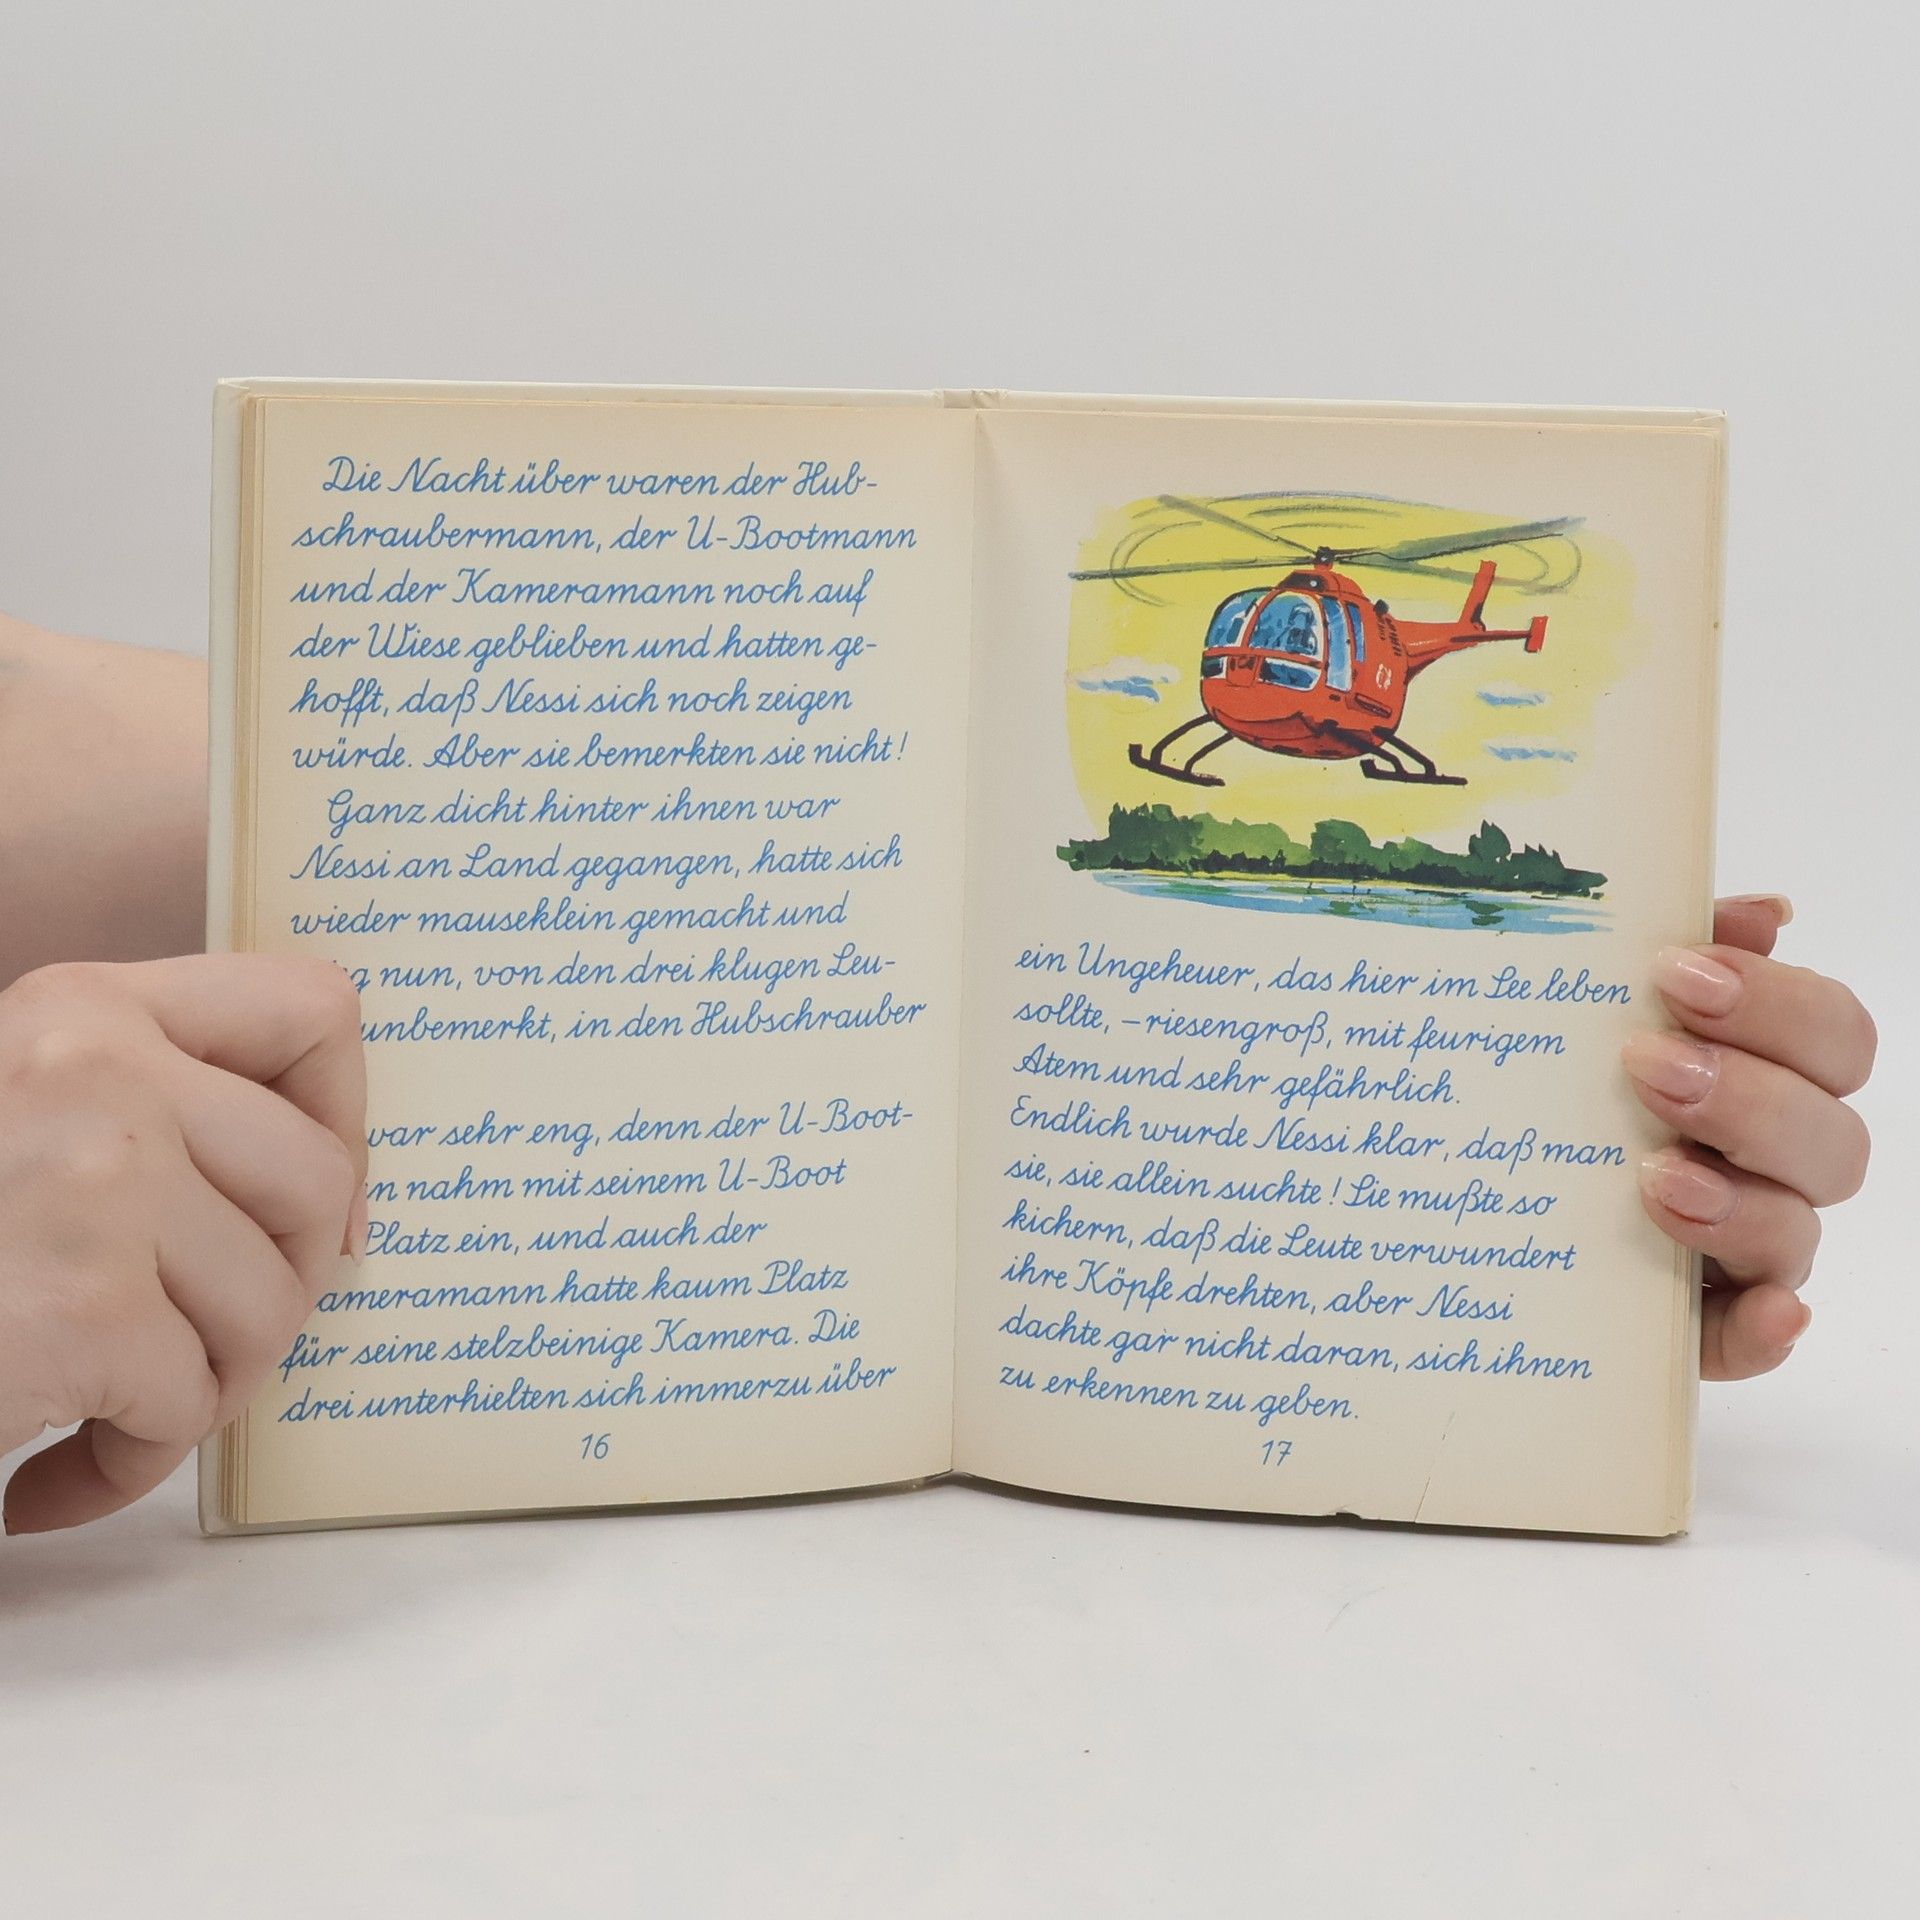 Die Nacht über waren der Hub-
schraubermann, der U-Bootmann
und der Kameramann noch auf
der Wiese geblieben und hatten ge-
hofft, daß Nessi sich noch zeigen
würde. Aber sie bemerkten sie nicht!
Ganz dicht hinter ihnen war
Nessi an Land gegangen, hatte sich
wieder mauseklein gemacht und
nun, von den drei klugen Leu-
unbemerkt, in den Hubschrauber
war sehr eng, denn der U-Boot-
nahm mit seinem U-Boot
Platz ein, und auch der
ameramann hatte kaum Platz
für seine stelzbeinige Kamera. Die
drei unterhielten sich immerzu über
16
ein Ungeheuer, das hier im See leben
sollte, – riesengroß, mit feurigem
Atem und sehr gefährlich.
Endlich wurde Nessi klar, daß man
sie, sie allein suchte! Sie mußte so
kichern, daß die Leute verwundert
ihre Köpfe drehten, aber Nessi
dachte gar nicht daran, sich ihnen
zu erkennen zu geben.
17